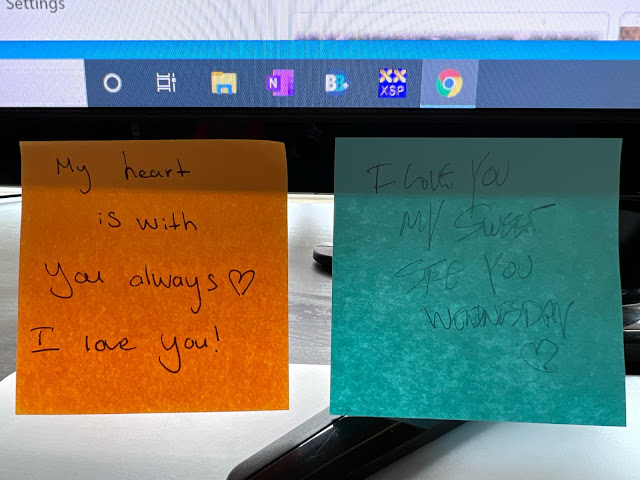 Settings
N
B
XX
XSP
My heart
is with
you always♡
I love you!
I LOVE YOU
MY SWEET
SEE YOU
WEDNESDAY
♡